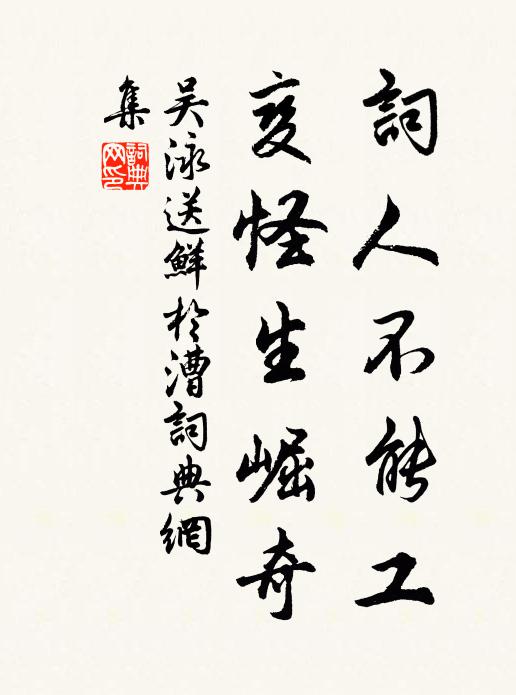 詞人不能工
変怪生崛奇
吴泳送鮮於漕詞典網
集
詞典
网印